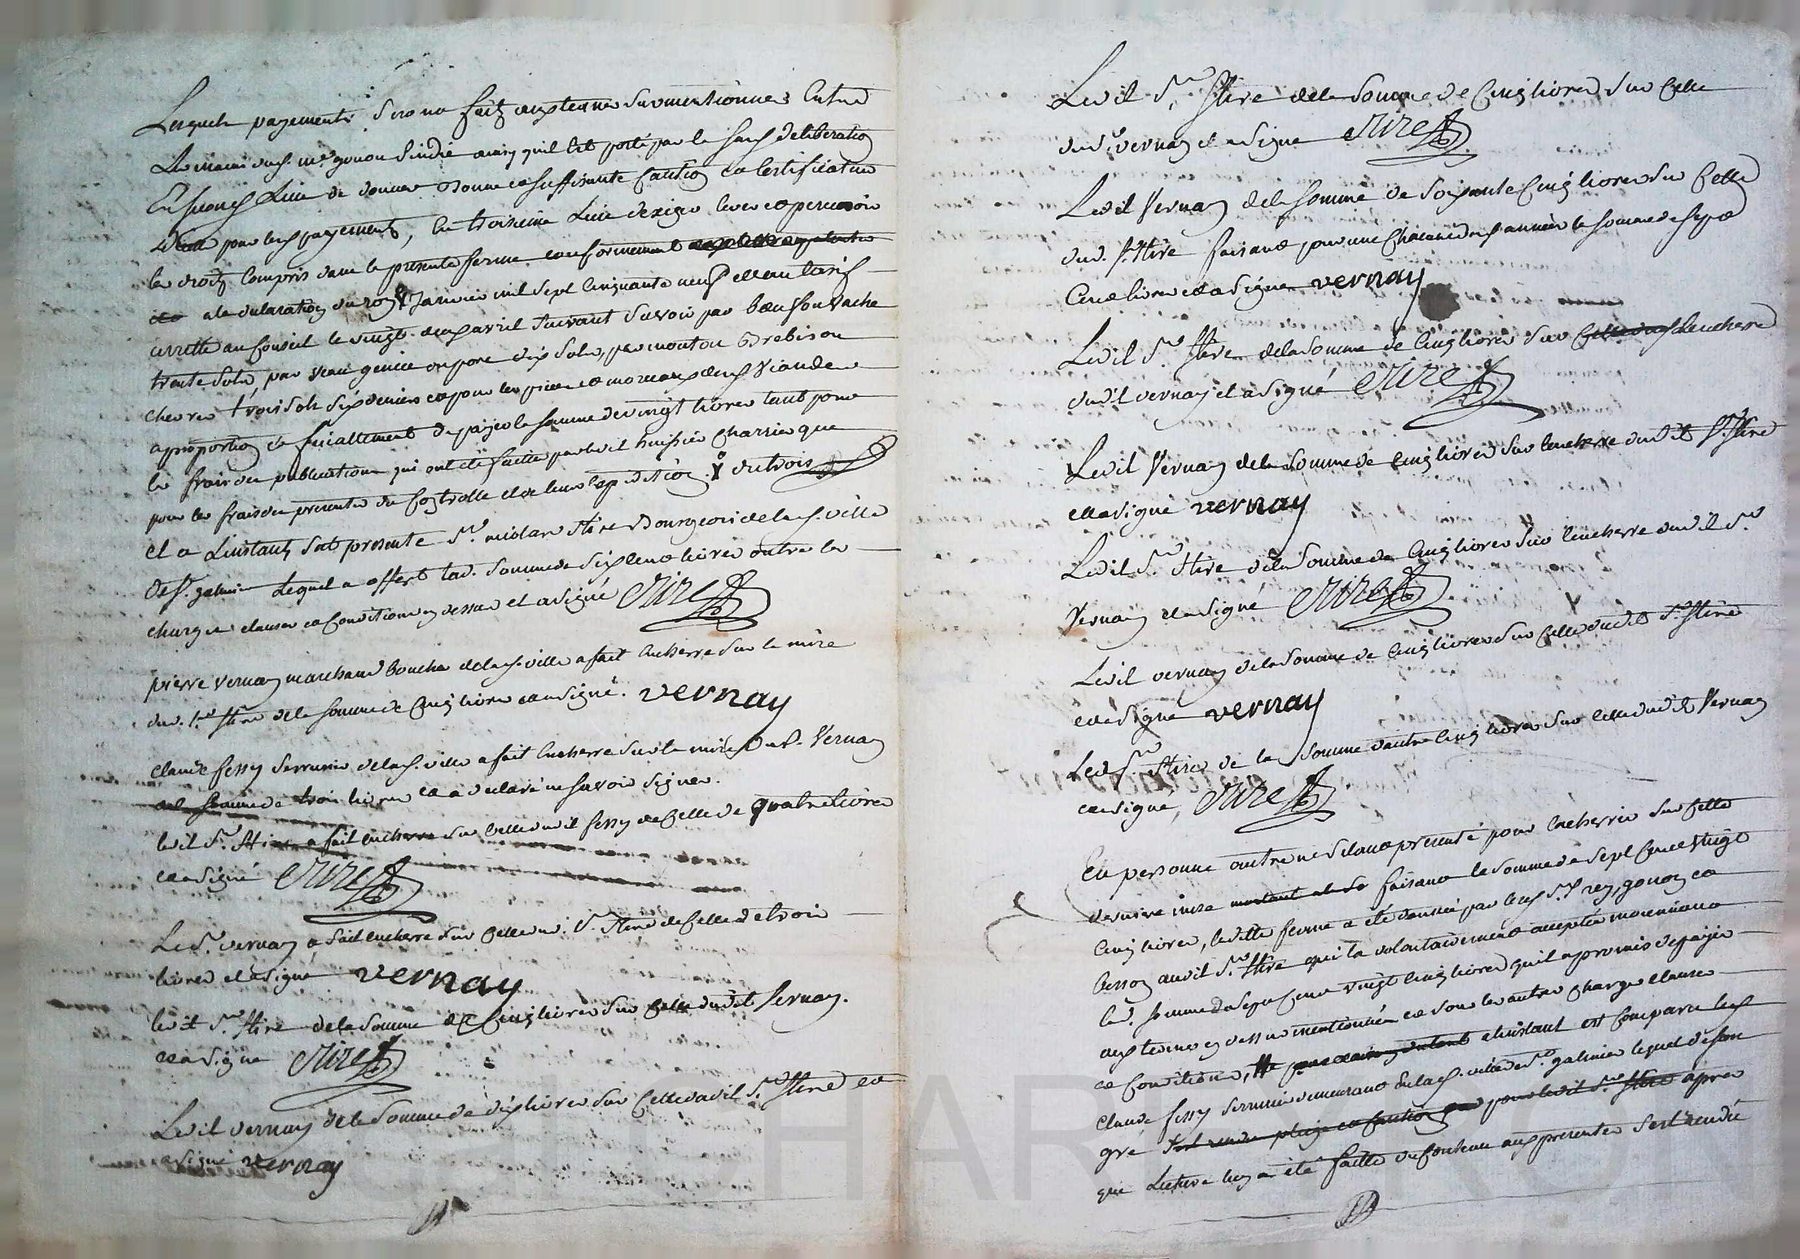 Lesquels payements seront faitz aux termes susmentionnes Entre
Les mains dud. me gonon sindic ainsy quil Est porté par la susd. deliberation
En second Lieu de donner bonne et suffisante caution et Certificateur
pour lesd. payements, En troisieme Lieu dexiger lever et percevoir
les droits Compris dans la presente ferme conformement
a la declaration du roy Janvier mil sept Cinquante neuf et au tarif
arretté au Conseil le vingt deux avril suivant savoir par boeuf ou vache
trente sols, par veau genisse ou porc dix sols, par mouton Brebis ou
chevres trois sols six deniers et pour les pieces et morceaux desd. viandes
a proportion et finallement de payer la somme de vingt livres tant pour
les frais des publications qui ont été faites par ledit huissier Charrier que
pour les frais des presentes du Controlle et de leur expedition. du trois
Et a Linstant sest presenté Sr. nicolas Stire Bourgeois de lad. ville
de St. galmier Lequel a offert lad. somme de six Cent livres outre les
charges clauses et Conditions cy dessus et a signé Stire
pierre vernay marchand boucher de lad. ville a fait Encherre sur la mise
dud. Sr. Stire de la somme de Cinq livres et a signé. vernay
Claude fessy serrurier de lad. ville a fait Encherre sur la mise dud. Vernay
de trois livres et a declaré ne savoir signer.
ledit Sr. Stire a fait encherre sur Celle dudit fessy de Celle de quatre livres
et a signé Stire
Le Sr. vernay a fait encherre sur Celle dud. Sr. Stire de Celle de trois
livres et a signé vernay
ledit Sr. Stire de la somme de Cinq livres sur Celle dudit Vernay.
et a signé Stire
Ledit vernay de la somme de dix livres sur Celle dudit Sr. Stire et
a signé vernay
Ledit Sr. Stire de la somme de Cinq livres sur Celle
dud. vernay et a signé Stire
Ledit Vernay de la somme de soixante Cinq livres sur Celle
dud. Sr. Stire faisant pour une Chacune desd. années la somme de sept
Cent livres et a signé vernay
Ledit Sr. Stire de la somme de Cinq livres sur lencherre
dudit vernay et a signé Stire
Ledit Vernay de la somme de Cinq livres sur lencherre dudit Sr. Stire
et a signé vernay
Ledit Sr. Stire de la somme de Cinq livres sur lencherre dudit Sr.
Vernay et a signé Stire
Ledit vernay de la somme de Cinq livres sur Celle dudit Sr. Stire
et a signé vernay
Ledit Sr. Stire de la somme dautre Cinq livres sur Celle dudit Vernay
et a signé, Stire
Et personne autre ne s'étant presenté pour Encherrir sur Celle
derniere mise faisant la somme de sept Cent vingt
Cinq livres, laditte ferme a été donnée par lesd. Srs. rey, gonon et
besson audit Sr. Stire qui l'a volontairement acceptée moiennant
lad. somme de sept Cent vingt Cinq livres quil a promis de payer
aux termes cy dessus mentionnés et sous les autres charges clauses
et Conditions, et a linstant est Comparu led.
Claude fessy serrurier demeurant en lad. ville de St. galmier lequel de son
gré pour ledit Sr. Stire apres
que Lecture luy a été faitte du Contenu aux presentes s'est rendu